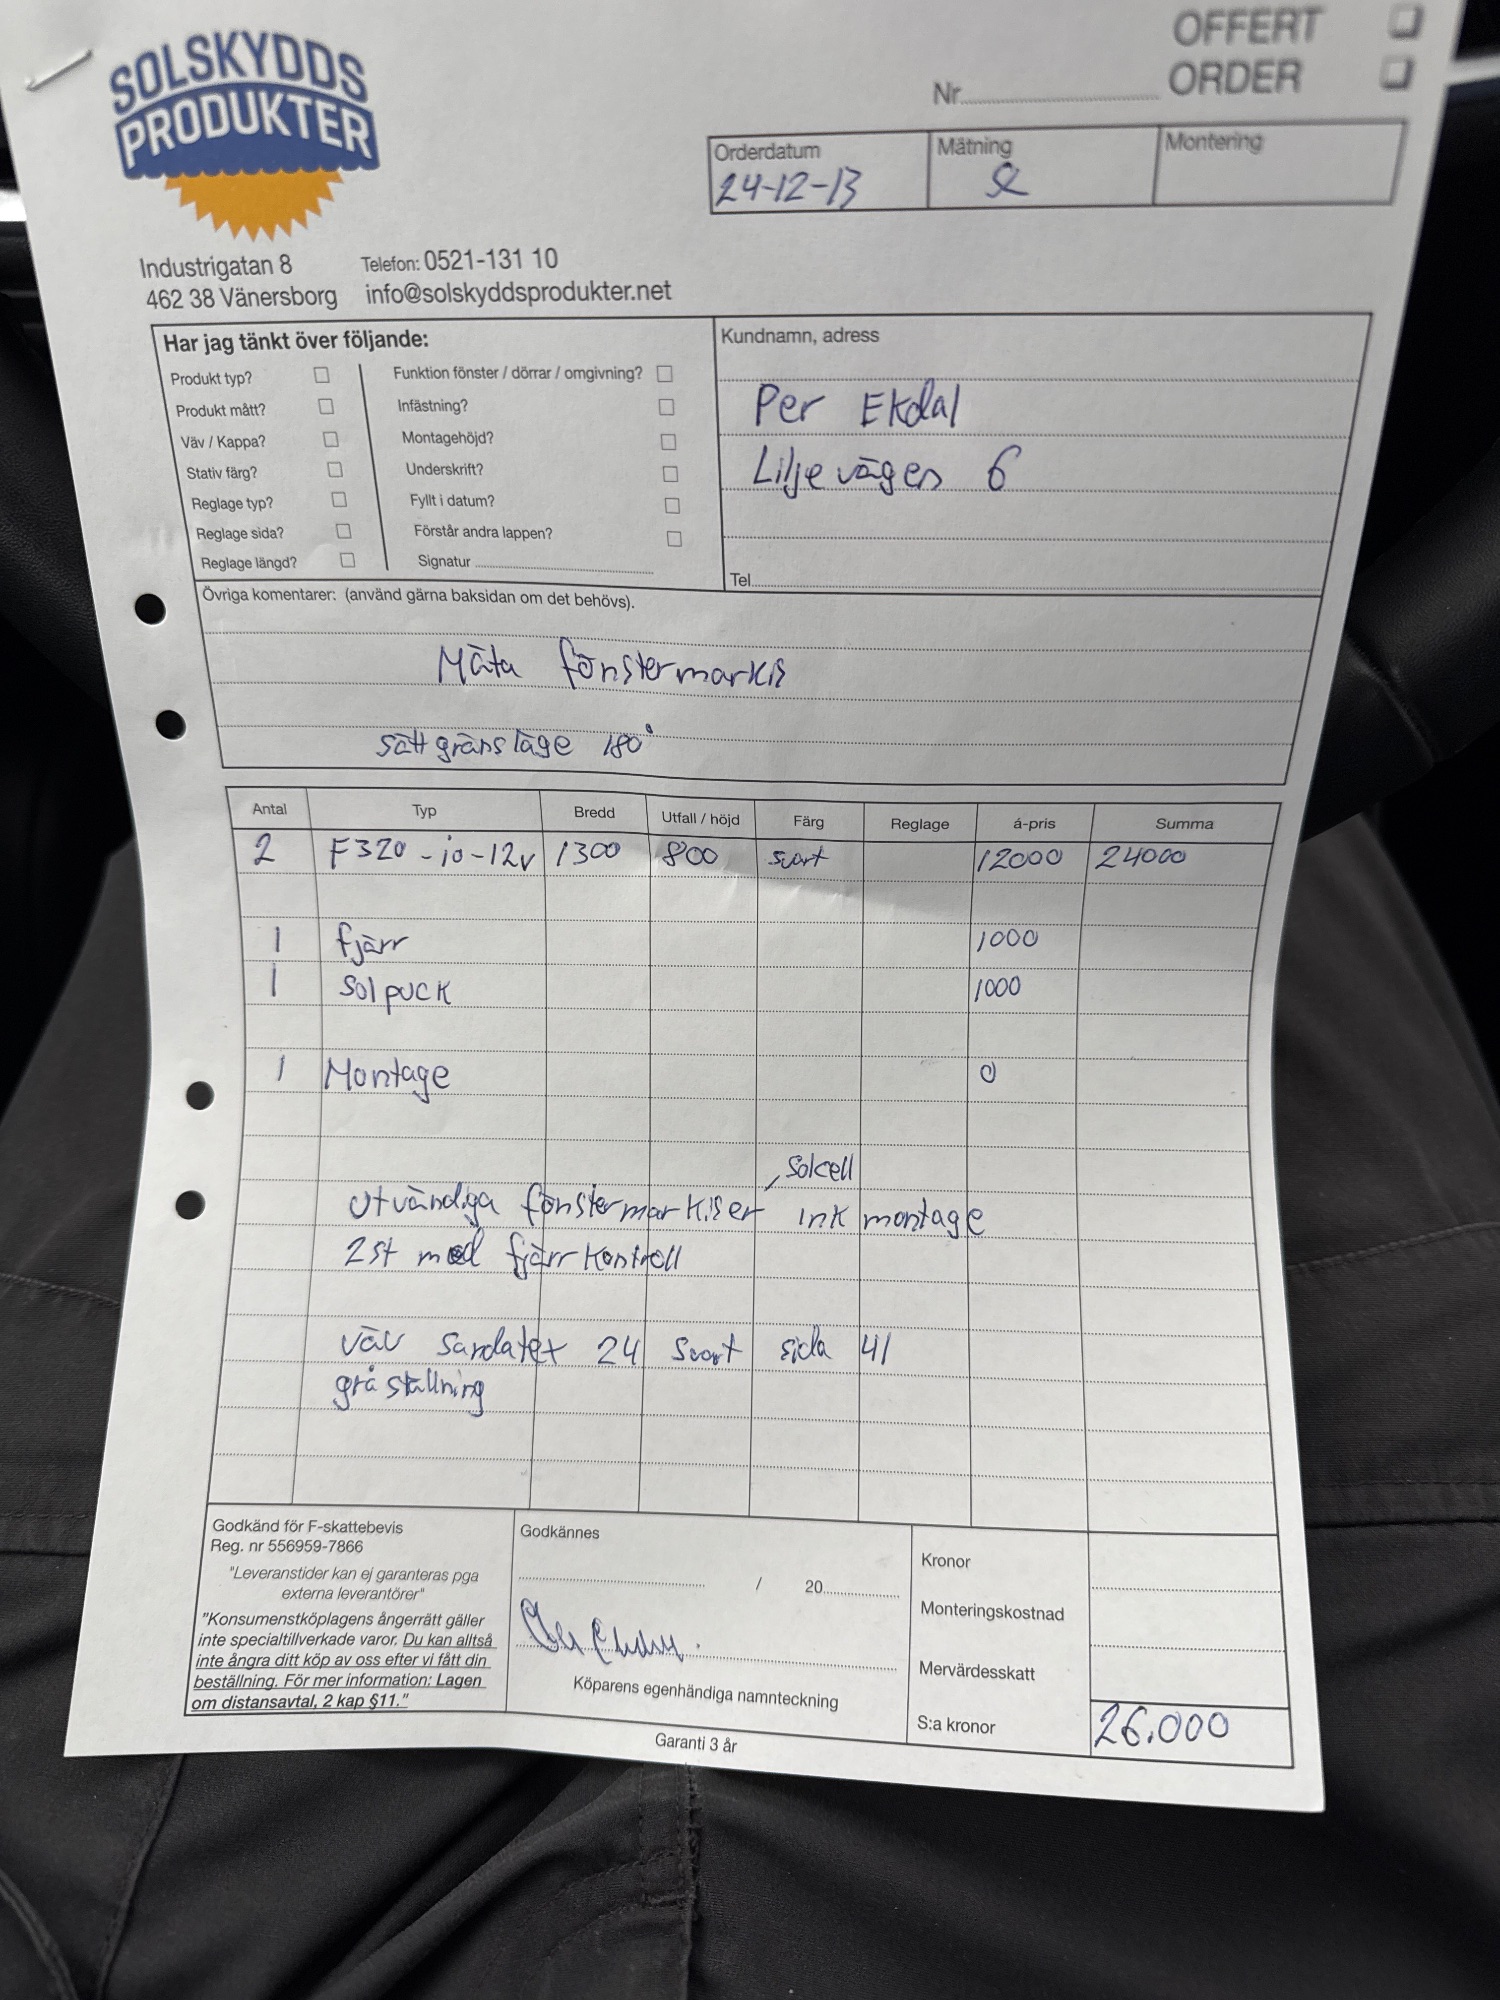 SOLSKYDDS
PRODUKTER
OFFERT
ORDER
Nr
Orderdatum Mätning Montering
24-12-13
Industrigatan 8 Telefon: 0521-131 10
462 38 Vänersborg info@solskyddsprodukter.net
Har jag tänkt över följande:
Produkt typ?
Produkt mått?
Väv / Kappa?
Stativ färg?
Reglage typ?
Reglage sida?
Reglage längd?
Funktion fönster / dörrar / omgivning?
Infästning?
Montagehöjd?
Underskrift?
Fyllt i datum?
Förstår andra lappen?
Signatur
Kundnamn, adress
Per Ekdal
Liljevägen 6
Tel
Övriga komentarer: (använd gärna baksidan om det behövs).
Mäta fönstermarkis
sätt gränsläge 180°
Antal Typ Bredd Utfall / höjd Färg Reglage á-pris Summa
2 F320-io-12v 1300 800 svart 12000 24000
1 fjärr 1000
1 Solpuck 1000
1 Montage 0
, solcell
utvändiga fönstermarkiser ink montage
2st med fjärrkontroll
väv sandatex 24 svart sida 41
grå ställning
Godkänd för F-skattebevis
Reg. nr 556959-7866
"Leveranstider kan ej garanteras pga
externa leverantörer"
"Konsumenstköplagens ångerrätt gäller
inte specialtillverkade varor. Du kan alltså
inte ångra ditt köp av oss efter vi fått din
beställning. För mer information: Lagen
om distansavtal, 2 kap §11."
Godkännes
/ 20
Köparens egenhändiga namnteckning
Kronor
Monteringskostnad
Mervärdesskatt
S:a kronor 26.000
Garanti 3 år